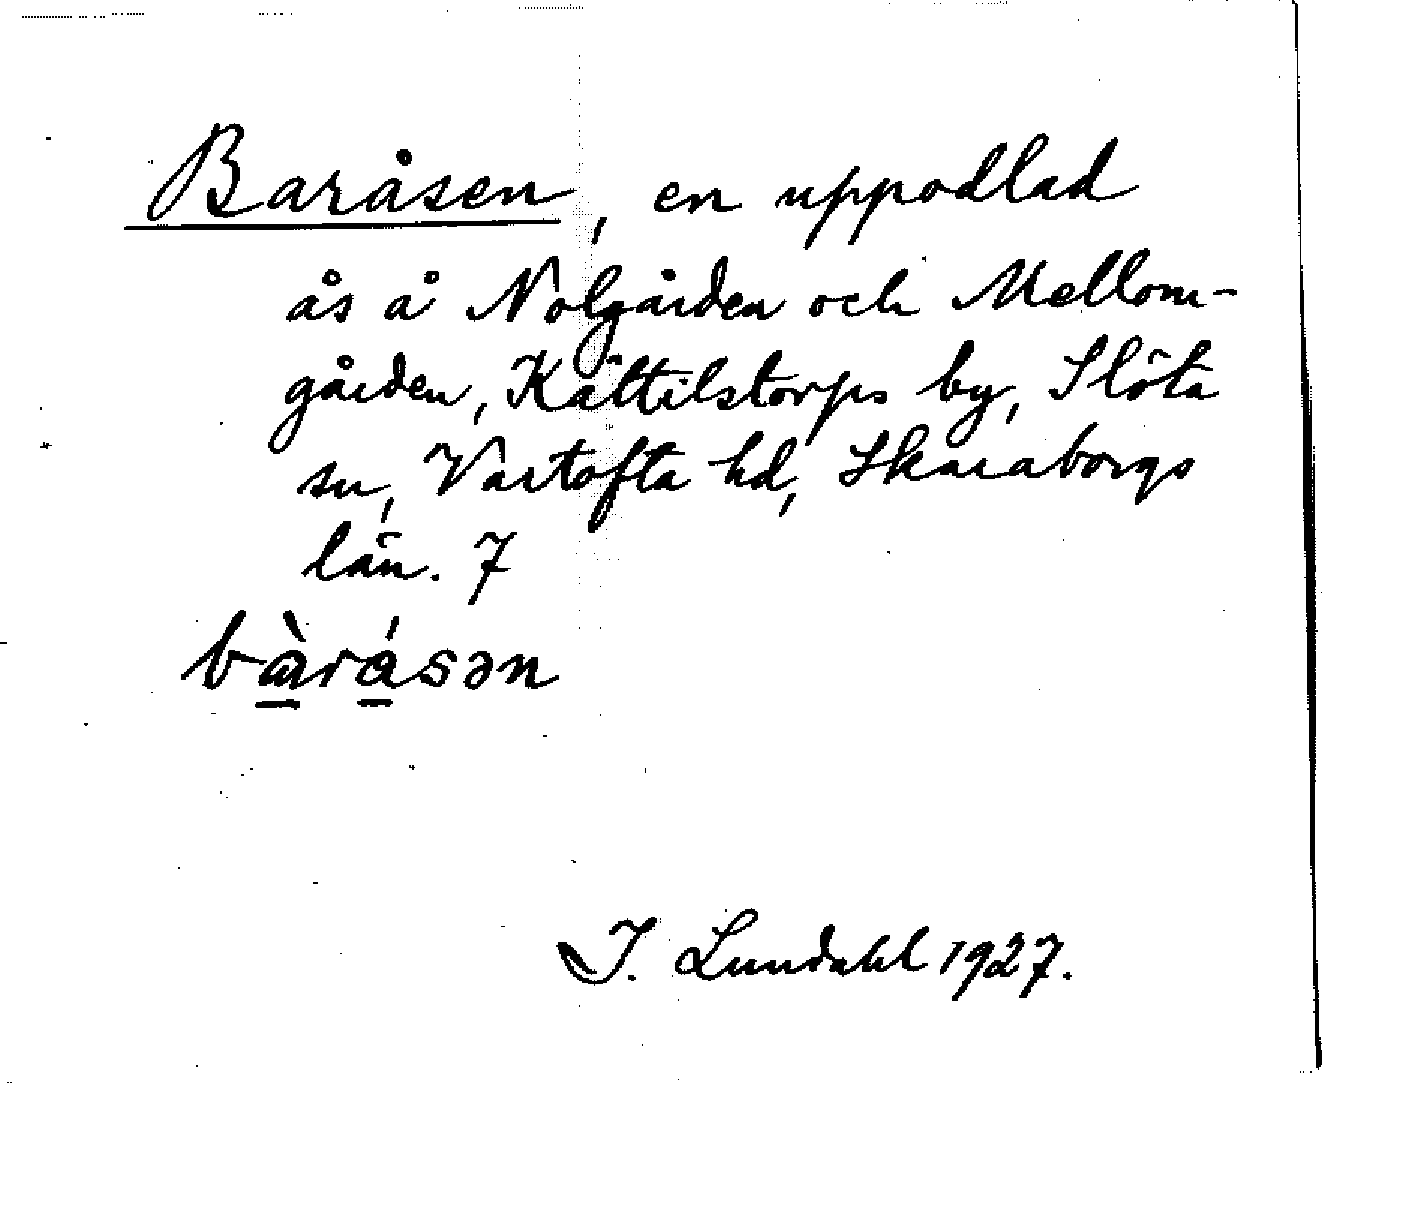 Baråsen, en uppodlad
ås å Nolgården och Mellom-
gården, Kättilstorps by, Slöta
sn, Vartofta hd, Skaraborgs
län. 7
bàrásən
I. Lundahl 1927.